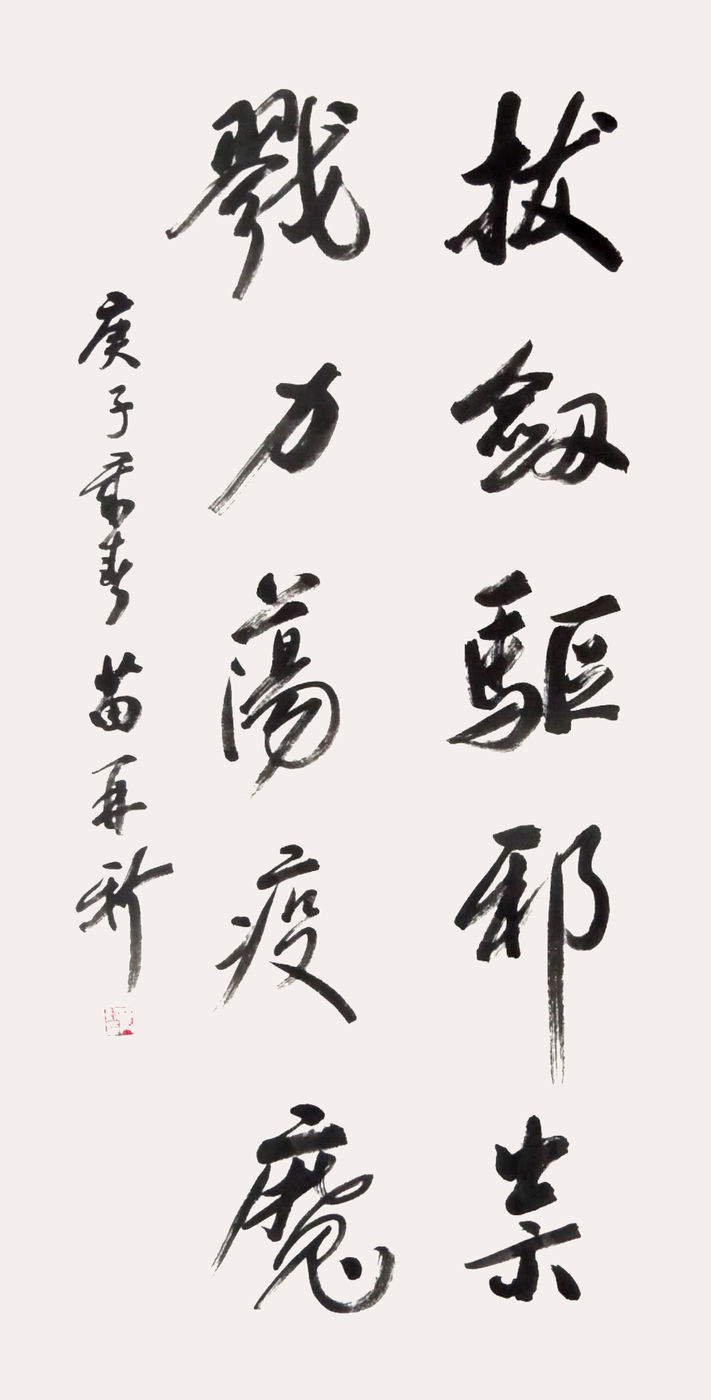 拔劔驅邪祟
戮力蕩疫魔
庚子季春 苗再新